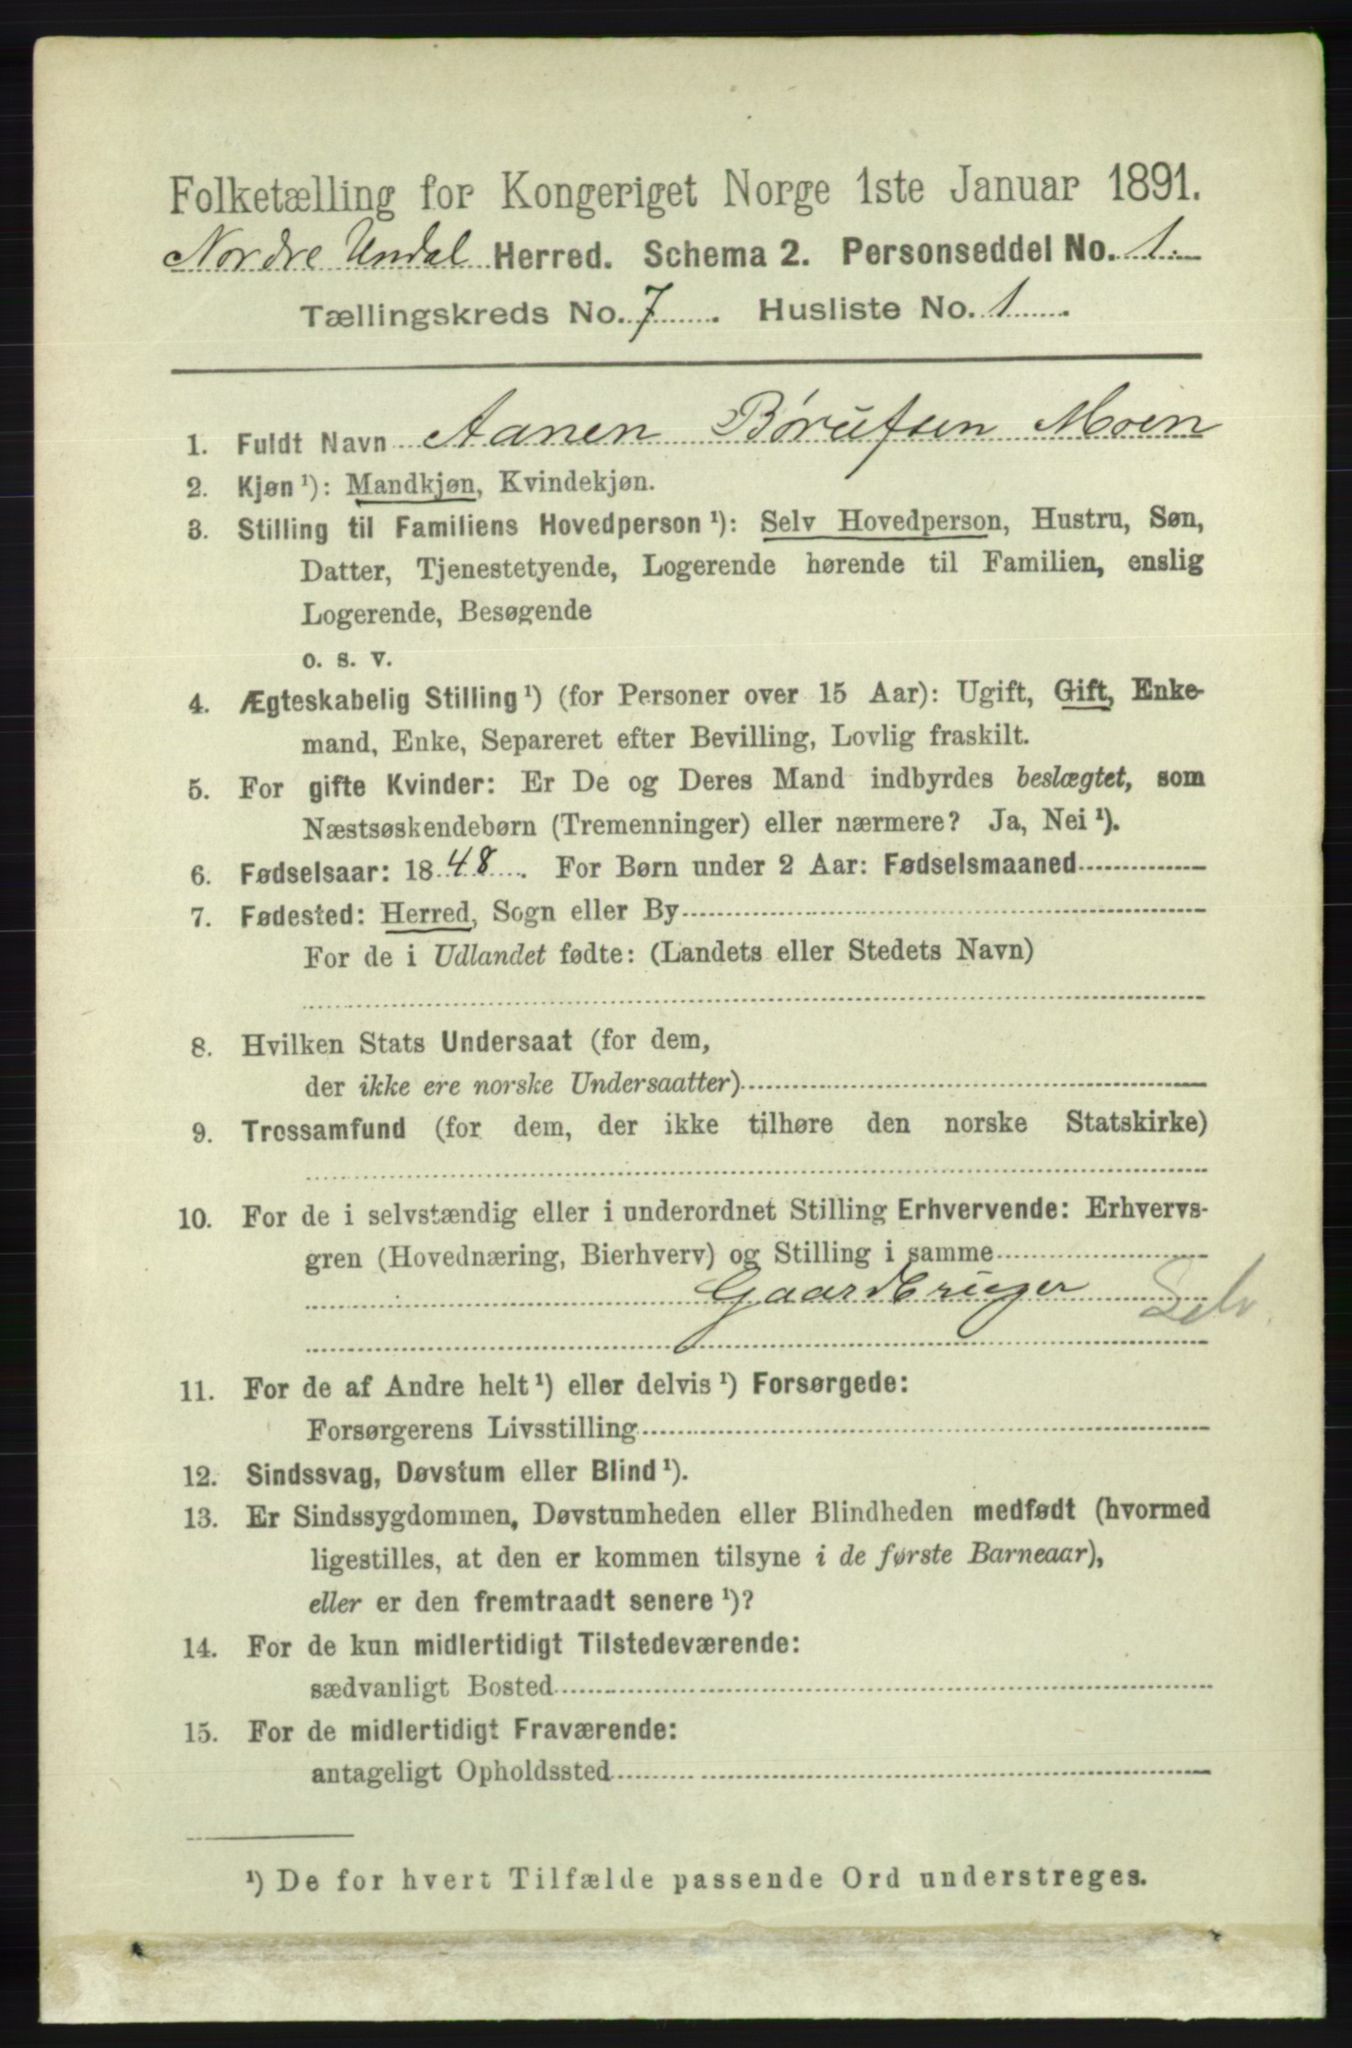 Folketælling for Kongeriget Norge 1ste Januar 1891.
Nordre Undal Herred. Schema 2. Personseddel No. 1.
Tællingskreds No. 7. Husliste No. 1.
1. Fuldt Navn Aanen Børufsen Moen
2. Kjøn ¹): Mandkjøn, Kvindekjøn.
3. Stilling til Familiens Hovedperson ¹): Selv Hovedperson, Hustru, Søn,
Datter, Tjenestetyende, Logerende hørende til Familien, enslig
Logerende, Besøgende
o. s. v.
4. Ægteskabelig Stilling ¹) (for Personer over 15 Aar): Ugift, Gift, Enke-
mand, Enke, Separeret efter Bevilling, Lovlig fraskilt.
5. For gifte Kvinder: Er De og Deres Mand indbyrdes beslægtet, som
Næstsøskendebørn (Tremenninger) eller nærmere? Ja, Nei ¹).
6. Fødselsaar: 1848. For Børn under 2 Aar: Fødselsmaaned
7. Fødested: Herred, Sogn eller By
For de i Udlandet fødte: (Landets eller Stedets Navn)
8. Hvilken Stats Undersaat (for dem,
der ikke ere norske Undersaatter)
9. Trossamfund (for dem, der ikke tilhøre den norske Statskirke)
10. For de i selvstændig eller i underordnet Stilling Erhvervende: Erhvervs-
gren (Hovednæring, Bierhverv) og Stilling i samme
Gaardbruger Selv.
11. For de af Andre helt ¹) eller delvis ¹) Forsørgede:
Forsørgerens Livsstilling
12. Sindssvag, Døvstum eller Blind ¹).
13. Er Sindssygdommen, Døvstumheden eller Blindheden medfødt (hvormed
ligestilles, at den er kommen tilsyne i de første Barneaar),
eller er den fremtraadt senere ¹)?
14. For de kun midlertidigt Tilstedeværende:
sædvanligt Bosted
15. For de midlertidigt Fraværende:
antageligt Opholdssted
¹) De for hvert Tilfælde passende Ord understreges.